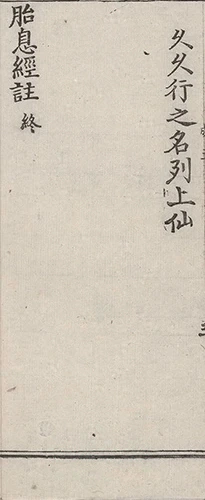 久久行之名列上仙
胎息經註 終